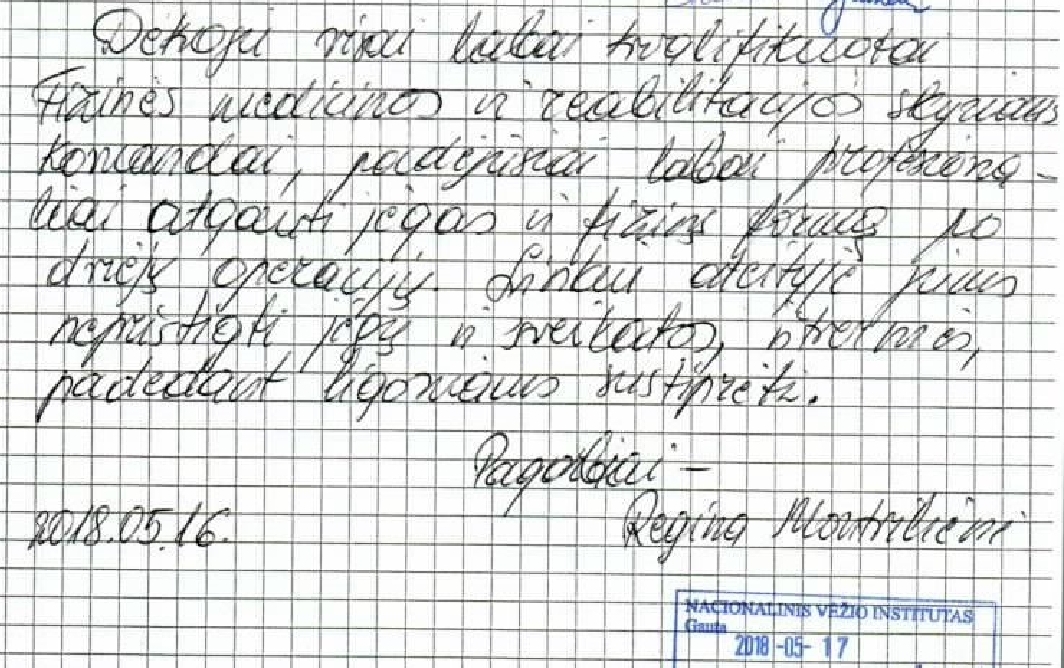 Dėkoju visai labai kvalifikuotai
Fizinės medicinos ir reabilitacijos skyriaus
komandai, padėjusiai labai profesiona-
liai atgauti jėgas ir fizinę formą po
dviejų operacijų. Linkiu ateityje jums
nepristigti jėgų ir sveikatos, ištvermės,
padedant ligoniams sustiprėti.
Pagarbiai -
2018.05.16. Regina
NACIONALINIS VĖŽIO INSTITUTAS
Gauta
2018 -05- 17